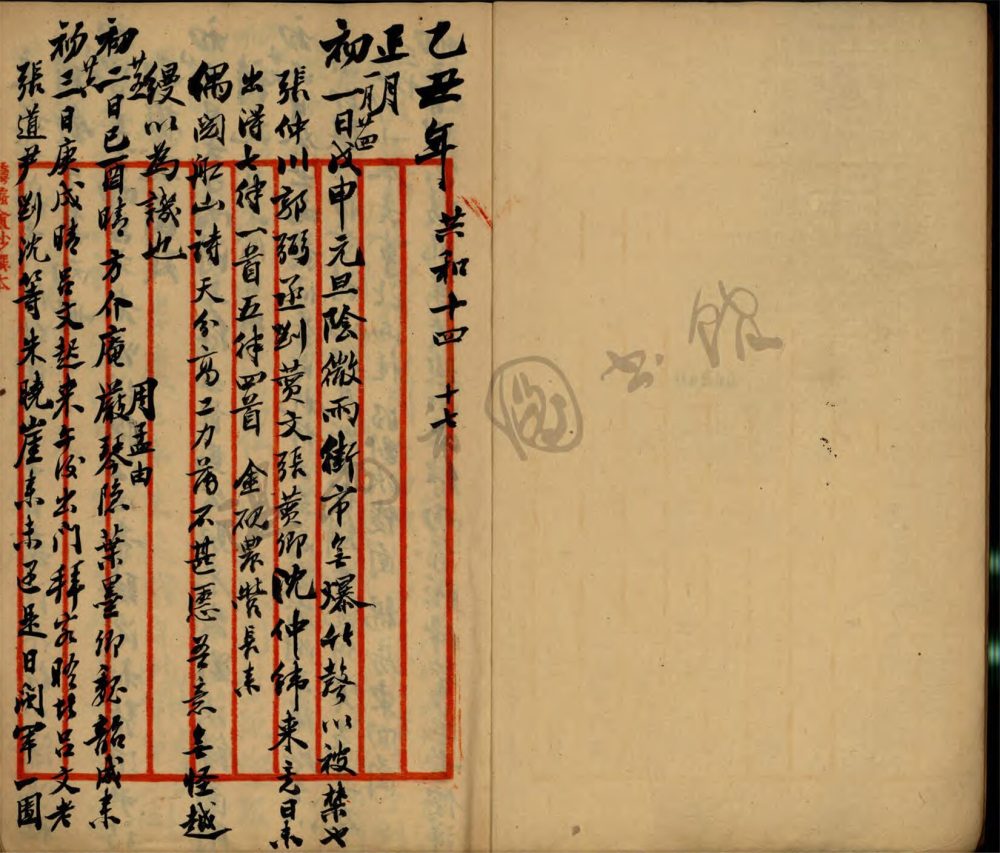 乙丑年 共和十四 十七
正月
一月廿四
初一日戊申元旦陰微雨街市無爆竹聲以被禁也
張仲川郭弼丞劉蓂文張蓂卿沈仲緯來竟日未
出得七律一首五律四首 金硯農 長來
偶閱船山詩天分高工力薄不甚愜吾意無怪越
縵以為譏也
周孟由
初二日己酉晴方介庵嚴琴隱葉墨卿 韶成來
初三日庚戌晴呂文起來午後出門拜客晤 呂文老
張道尹劉沈等朱曉崖來未 是日閱 一圍
圖書館